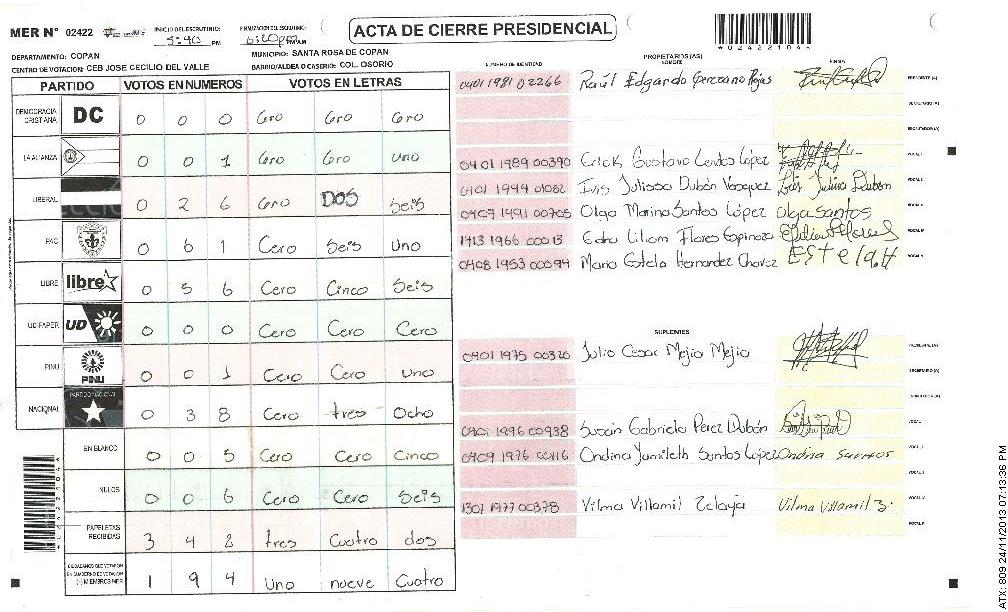 MER N° 02422
INICIO DEL ESCRUTINIO: 5:40 PM
6:20 pm
ACTA DE CIERRE PRESIDENCIAL
DEPARTAMENTO: COPAN
MUNICIPIO: SANTA ROSA DE COPAN
CENTRO DE VOTACION: CEB JOSE CECILIO DEL VALLE
BARRIO/ALDEA O CASERIO: COL. OSORIO
PARTIDO VOTOS EN NUMEROS VOTOS EN LETRAS
DEMOCRACIA CRISTIANA DC 0 0 0 Cero Cero Cero
LA ALIANZA 0 0 1 Cero Cero uno
LIBERAL 0 2 6 Cero DOS Seis
PAC 0 6 1 Cero Seis Uno
LIBRE libre 0 5 6 Cero Cinco Seis
UD-FAPER UD 0 0 0 Cero Cero Cero
PINU PINU 0 0 1 Cero Cero uno
NACIONAL PARTIDO NACIONAL 0 3 8 Cero tres Ocho
EN BLANCO 0 0 5 Cero Cero Cinco
NULOS 0 0 6 Cero Cero Seis
PAPELETAS RECIBIDAS 3 4 2 tres Cuatro dos
CIUDADANOS QUE VOTARON EN CUADERNO DE VOTACION (+) MIEMBROS MER 1 9 4 Uno nueve Cuatro
NUMERO DE IDENTIDAD PROPIETARIOS (AS) NOMBRE FIRMA
0401 1981 02266 Raúl Edgardo Rojas PRESIDENTE (A)
SECRETARIO (A)
ESCRUTADOR (A)
0401 1989 00390 Erick Gustavo López VOCAL I
0401 1994 01082 Iris Julissa Dubón Vasquez VOCAL II
0407 1991 00705 Olga Marina Santos López olga santos VOCAL III
1413 1966 00013 Edra Liliam Flores Espinoza VOCAL IV
0408 1953 00094 Maria Estela Hernandez Chavez Estela.H VOCAL V
SUPLENTES
0401 1975 00320 Julio Cesar Mejia Mejia PRESIDENTE (A)
SECRETARIO (A)
ESCRUTADOR (A)
0401 1996 00938 Susan Gabriela Perez Dubón VOCAL I
0409 1976 00116 Ondina Yamileth Santos López Ondina Santos VOCAL II
VOCAL III
1301 1977 00378 Vilma Villamil Zelaya Vilma Villamil Z. VOCAL IV
VOCAL V
ATX: 809 24/11/2013 07:13:36 PM